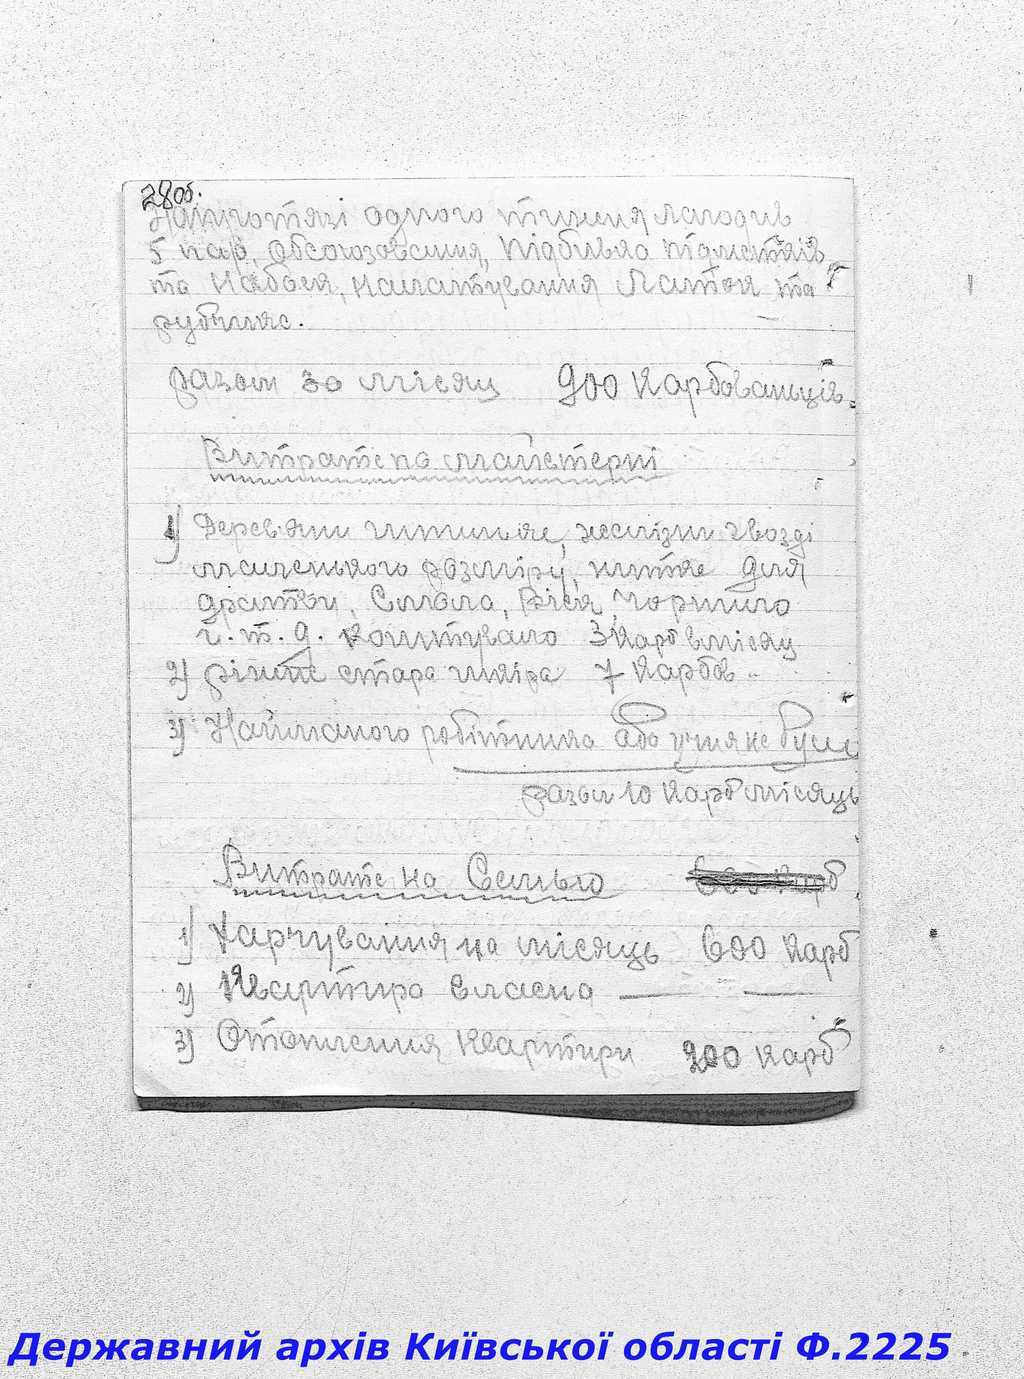 28об.
Напротязі одного тижня лагодив
5 пар, Обсоюзовання, підбивка підметків
та набоек, накатування Латок та
рубчика.
разом за місяц 900 Карбованьців.
Витрате по Майстерні
1) Дерев'яни шпильке, желізни гвозді
маленького розміру, нитке для
дратви, Смола, Віск, Чорнило
і. т. д. коштувало 3 Карб в місяц
2) різне стара шкіра 7 Карбов.
3) Найманого робітника або учня не було
разом 10 Карб місяць
Витрате на Семью
1) Харчування на місяць 600 Карб
2) Квартира власна —
3) Отоплення Квартири 200 Карб
Державний архів Київської області Ф.2225